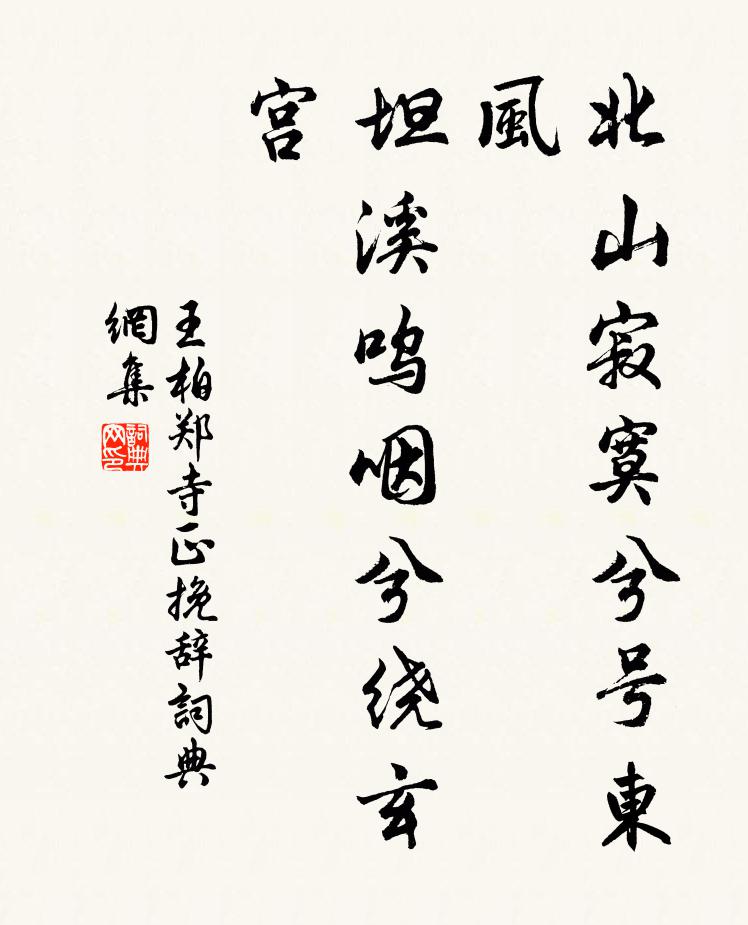 北山寂寞兮号東
風
坦溪呜咽兮绕玄
宫
王柏郑寺正挽辞詞典
網集
詞典
网印